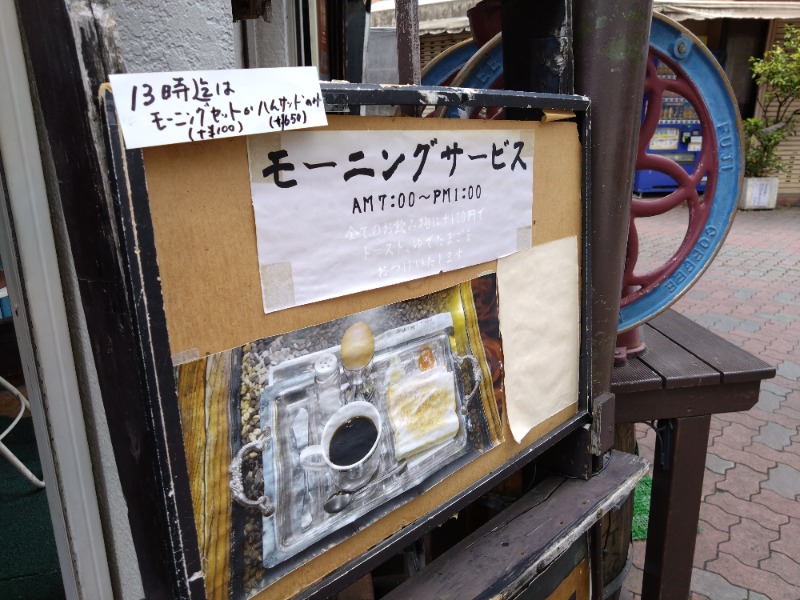 13時迄は
モーニングセットかハムサンドのみ
(+¥100) (+¥650)
モーニングサービス
AM7:00～PM1:00
全てのお飲み物に+100円で
トースト ゆでたまごを
おつけいたします
FUJI
COFFEE